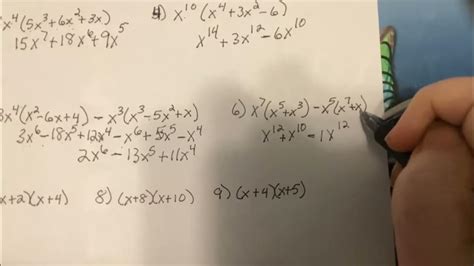 x⁴(5x³+6x²+3x)
15x⁷+18x⁶+9x⁵
4) x¹⁰(x⁴+3x²-6)
x¹⁴+3x¹²-6x¹⁰
3x⁴(x²-6x+4) - x³(x³-5x²+x)
3x⁶-18x⁵+12x⁴-x⁶+5x⁵-x⁴
2x⁶-13x⁵+11x⁴
6) x⁷(x⁵+x³)-x⁵(x⁷+x)
x¹²+x¹⁰-1x¹²
x+2)(x+4)
8) (x+8)(x+10)
9) (x+4)(x+5)